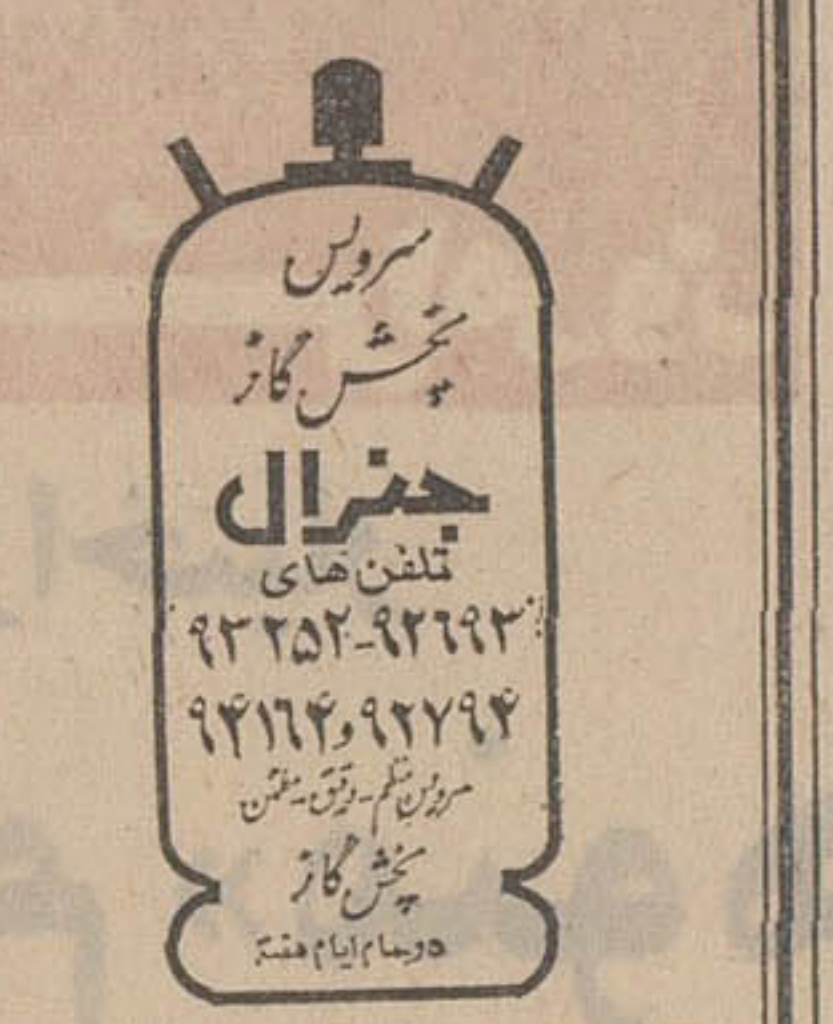 سرویس
پخش گاز
جنرال
تلفن های
۹۳۲۵۲-۹۲۶۹۳
۹۴۱۶۴ و ۹۲۷۹۴
سرویس منظم - دقیق - مطمئن
پخش گاز
در تمام ایام هفته